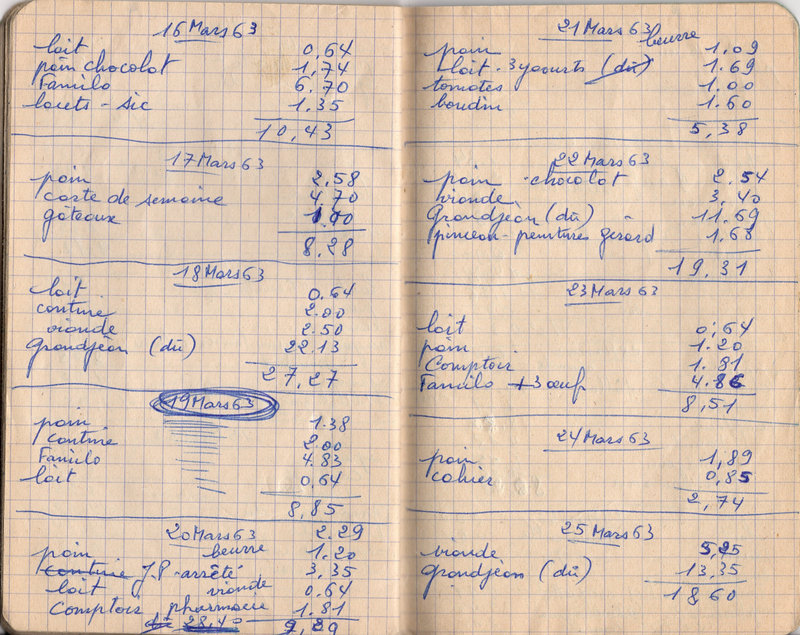 16 Mars 63
lait 0,64
pain chocolat 1,74
Familo 6.70
lacets - sic 1.35
10,43
17 Mars 63
pain 2,58
carte de semaine 4,70
gâteaux 1.00
8,28
18 Mars 63
lait 0.64
cantine 2.00
viande 2.50
Grandjean (dû) 22.13
27,27
19 Mars 63
pain 1.38
cantine 2.00
Familo 4.83
lait 0,64
8,85
20 Mars 63 2.29
pain beurre 1.20
cantine J.P. arrêté 3,35
lait viande 0.64
Comptoir pharmacie 1.81
28,40 9,29
21 Mars 63
pain beurre 1.09
lait - 3 yaourts (dû) 1.69
tomates 1.00
boudin 1.60
5,38
22 Mars 63
pain - chocolat 2.54
viande 3,40
Grandjean (dû) 11.69
pinceau - peintures gerard 1,68
19,31
23 Mars 63
lait 0,64
pain 1.20
Comptoir 1.81
Familo + 3 œuf 4.86
8,51
24 Mars 63
pain 1,89
cahier 0,85
2,74
25 Mars 63
viande 5,25
Grandjean (dû) 13,35
18,60